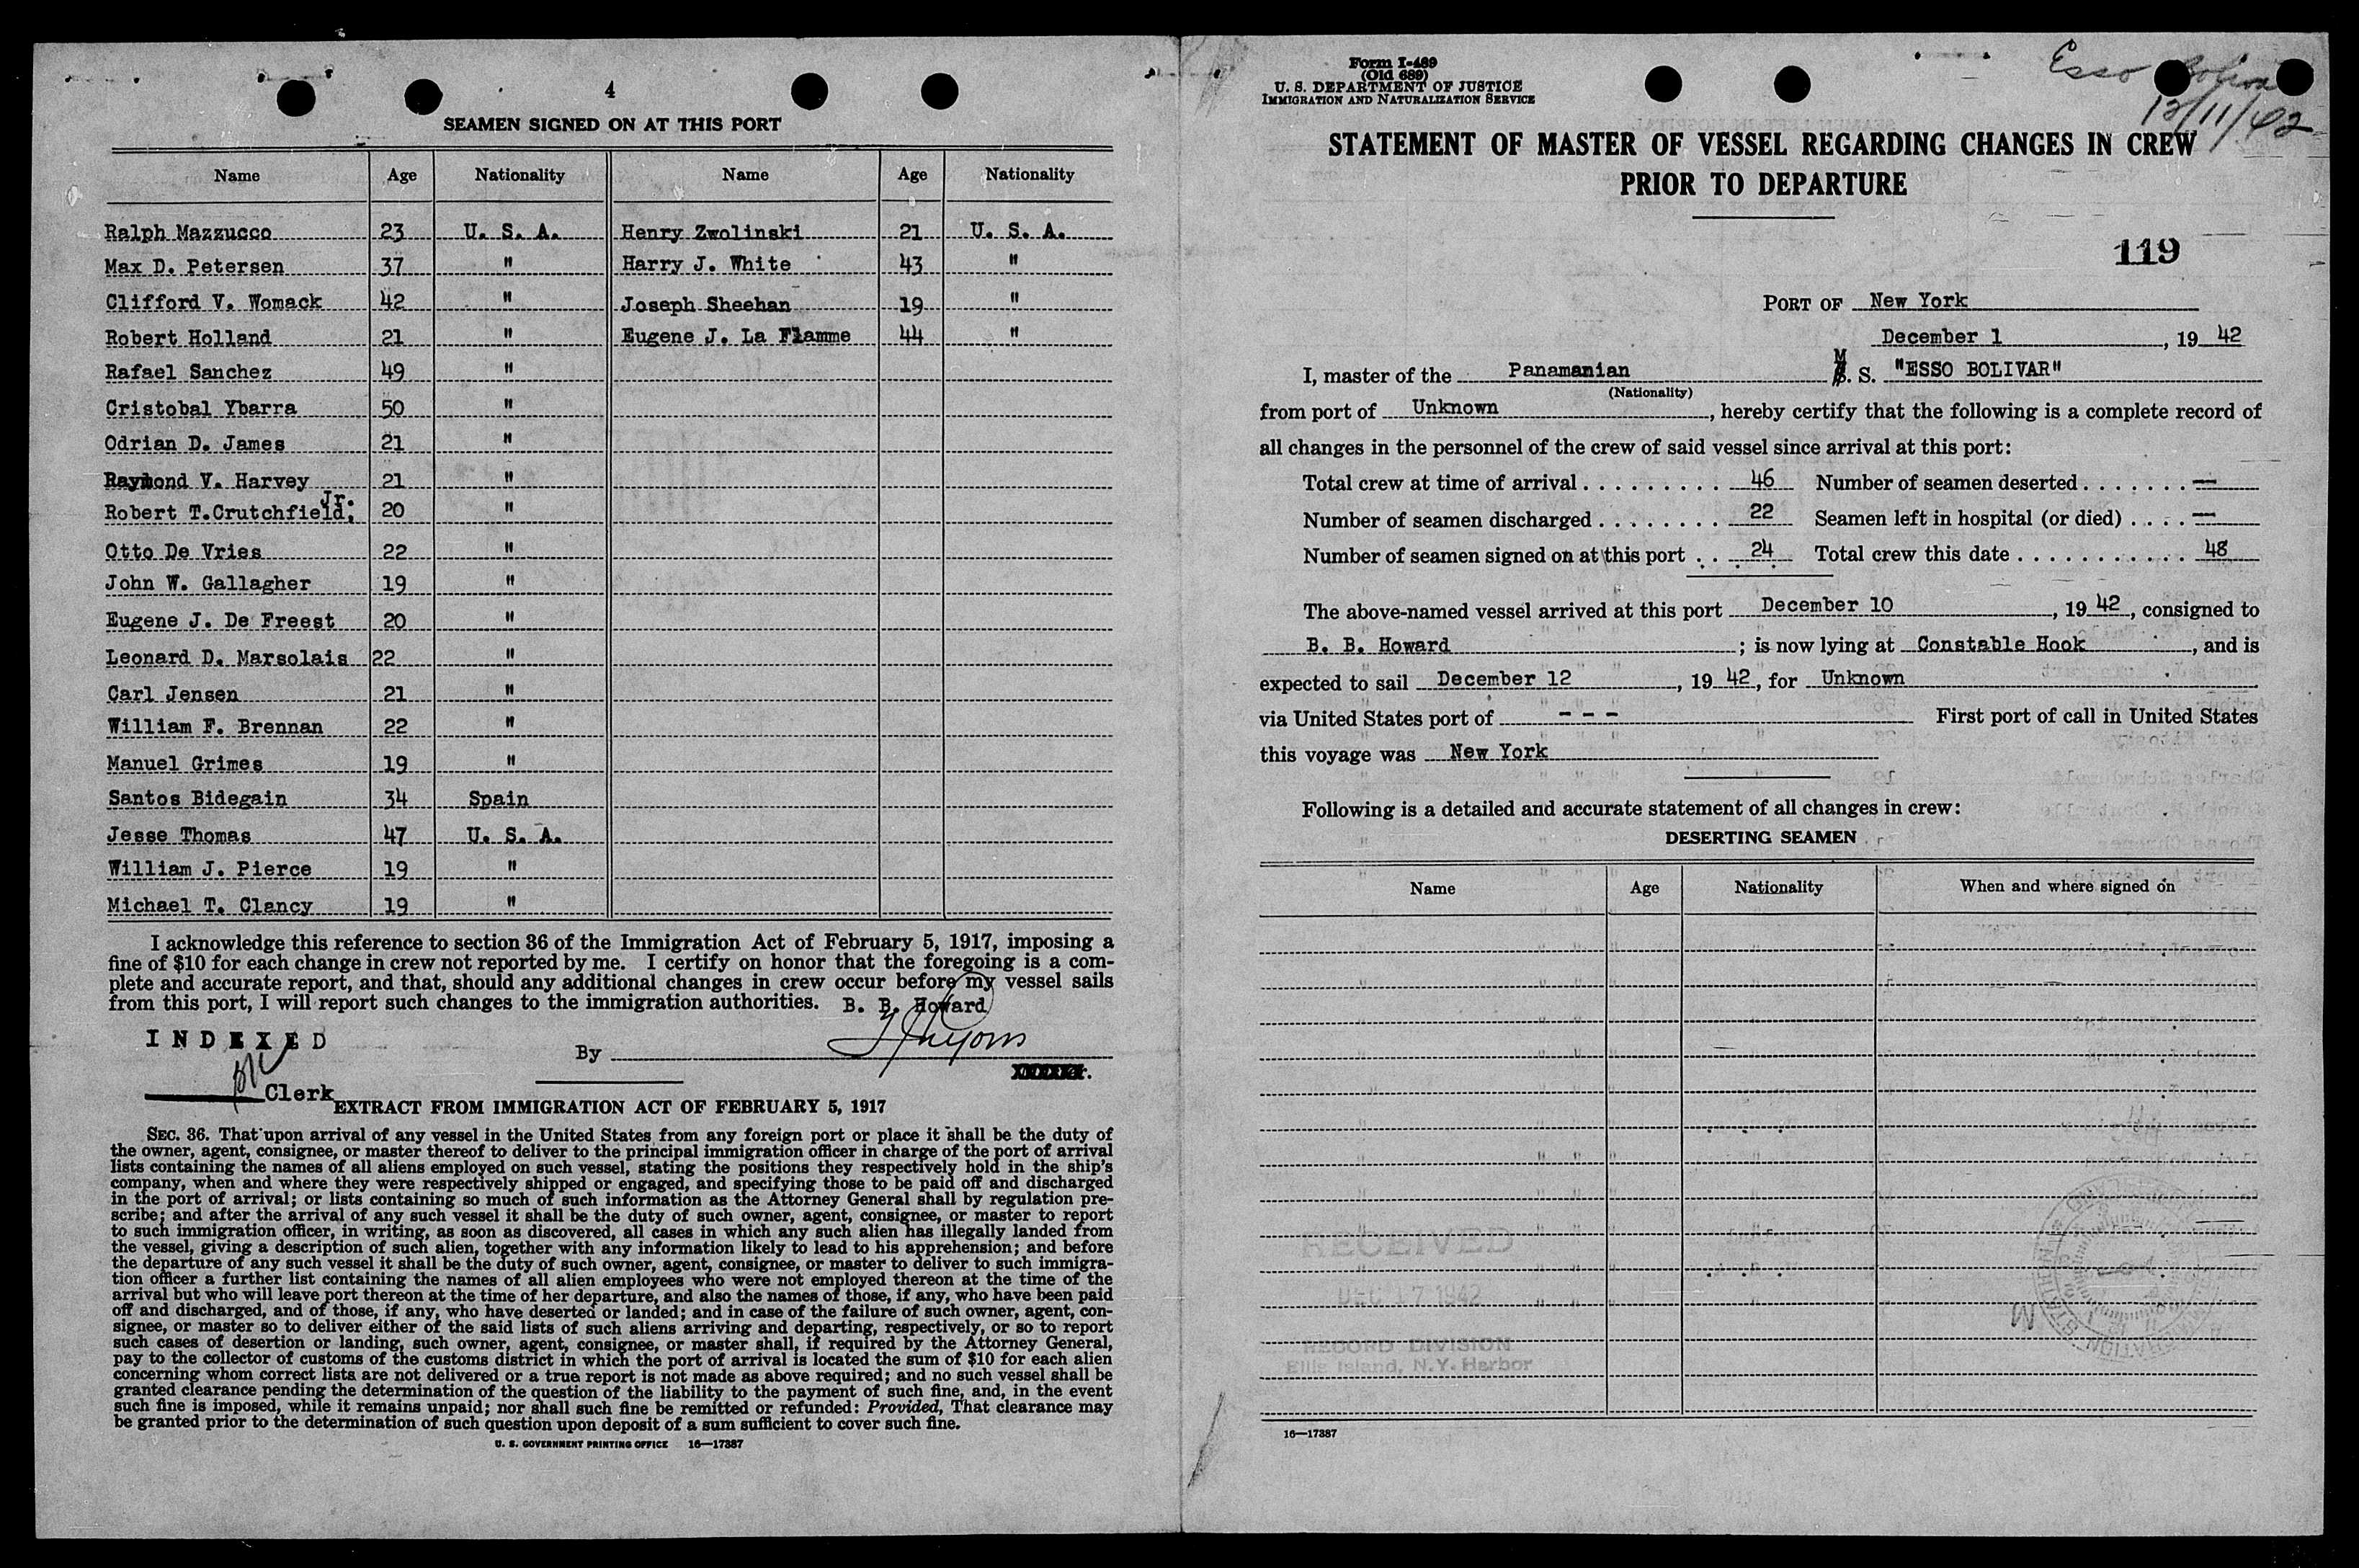 4
SEAMEN SIGNED ON AT THIS PORT
Name Age Nationality Name Age Nationality
Ralph Mazzucco 23 U. S. A. Henry Zwolinski 21 U. S. A.
Max D. Petersen 37 " Harry J. White 43 "
Clifford V. Womack 42 " Joseph Sheehan 19 "
Robert Holland 21 " Eugene J. La Flamme 44 "
Rafael Sanchez 49 "
Cristobal Ybarra 50 "
Odrian D. James 21 "
Raymond V. Harvey 21 "
Robert T.Crutchfield, Jr. 20 "
Otto De Vries 22 "
John W. Gallagher 19 "
Eugene J. De Freest 20 "
Leonard D. Marsolais 22 "
Carl Jensen 21 "
William F. Brennan 22 "
Manuel Grimes 19 "
Santos Bidegain 34 Spain
Jesse Thomas 47 U. S. A.
William J. Pierce 19 "
Michael T. Clancy 19 "
I acknowledge this reference to section 36 of the Immigration Act of February 5, 1917, imposing a
fine of $10 for each change in crew not reported by me. I certify on honor that the foregoing is a com-
plete and accurate report, and that, should any additional changes in crew occur before my vessel sails
from this port, I will report such changes to the immigration authorities. B. B. Howard
INDEXED
By
Clerk
EXTRACT FROM IMMIGRATION ACT OF FEBRUARY 5, 1917
SEC. 36. That upon arrival of any vessel in the United States from any foreign port or place it shall be the duty of
the owner, agent, consignee, or master thereof to deliver to the principal immigration officer in charge of the port of arrival
lists containing the names of all aliens employed on such vessel, stating the positions they respectively hold in the ship's
company, when and where they were respectively shipped or engaged, and specifying those to be paid off and discharged
in the port of arrival; or lists containing so much of such information as the Attorney General shall by regulation pre-
scribe; and after the arrival of any such vessel it shall be the duty of such owner, agent, consignee, or master to report
to such immigration officer, in writing, as soon as discovered, all cases in which any such alien has illegally landed from
the vessel, giving a description of such alien, together with any information likely to lead to his apprehension; and before
the departure of any such vessel it shall be the duty of such owner, agent, consignee, or master to deliver to such immigra-
tion officer a further list containing the names of all alien employees who were not employed thereon at the time of the
arrival but who will leave port thereon at the time of her departure, and also the names of those, if any, who have been paid
off and discharged, and of those, if any, who have deserted or landed; and in case of the failure of such owner, agent, con-
signee, or master so to deliver either of the said lists of such aliens arriving and departing, respectively, or so to report
such cases of desertion or landing, such owner, agent, consignee, or master shall, if required by the Attorney General,
pay to the collector of customs of the customs district in which the port of arrival is located the sum of $10 for each alien
concerning whom correct lists are not delivered or a true report is not made as above required; and no such vessel shall be
granted clearance pending the determination of the question of the liability to the payment of such fine, and, in the event
such fine is imposed, while it remains unpaid; nor shall such fine be remitted or refunded: Provided, That clearance may
be granted prior to the determination of such question upon deposit of a sum sufficient to cover such fine.
U. S. GOVERNMENT PRINTING OFFICE 16—17387
Form I-489
(Old 689)
U. S. DEPARTMENT OF JUSTICE
IMMIGRATION AND NATURALIZATION SERVICE
Esso Bolivar
12/11/42
STATEMENT OF MASTER OF VESSEL REGARDING CHANGES IN CREW
PRIOR TO DEPARTURE
119
PORT OF New York
December 1, 19 42
I, master of the Panamanian M. S. "ESSO BOLIVAR"
(Nationality)
from port of Unknown, hereby certify that the following is a complete record of
all changes in the personnel of the crew of said vessel since arrival at this port:
Total crew at time of arrival . . . . . . . . . 46 Number of seamen deserted . . . . . . . —
Number of seamen discharged . . . . . . . . 22 Seamen left in hospital (or died) . . . . —
Number of seamen signed on at this port . . 24 Total crew this date . . . . . . . . . . . . 48
The above-named vessel arrived at this port December 10, 19 42, consigned to
B. B. Howard; is now lying at Constable Hook, and is
expected to sail December 12, 19 42, for Unknown
via United States port of - - - First port of call in United States
this voyage was New York
Following is a detailed and accurate statement of all changes in crew:
DESERTING SEAMEN
Name Age Nationality When and where signed on
RECEIVED
DEC 17 1942
RECORD DIVISION
Ellis Island, N.Y. Harbor
16—17387